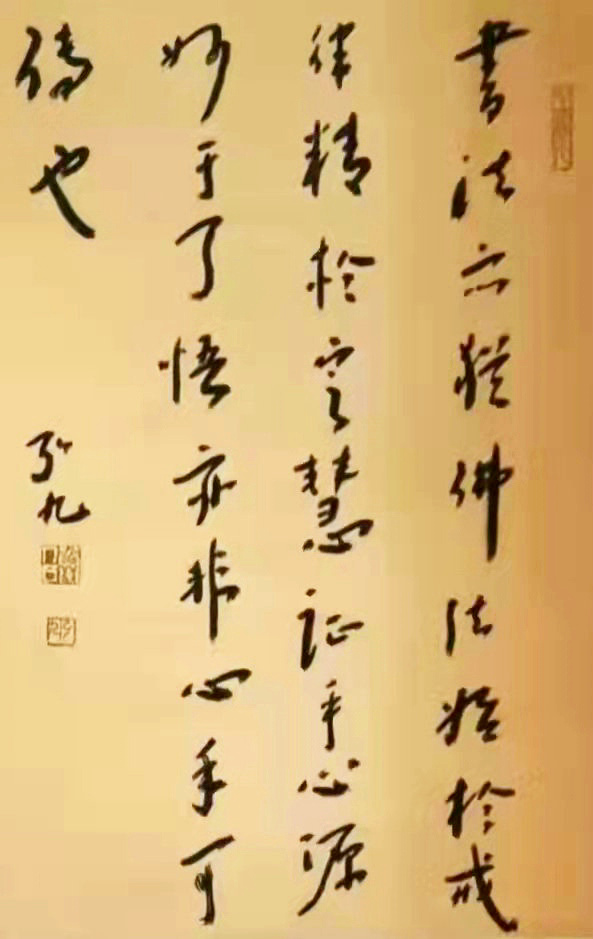 書法亦猶佛法始於戒
律精於定慧证乎心源
妙于了悟亦非心手可
傳也